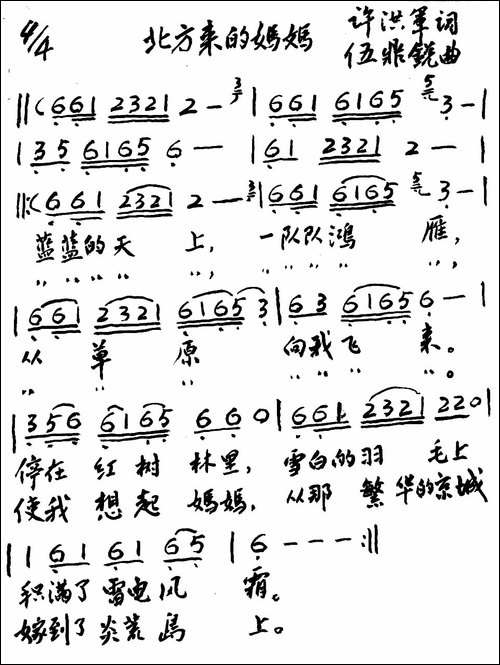 4/4 北方来的媽媽 许洪军词
伍鼎鋭曲
||( 661 2321 2 — 3 | 661 6165 5 3 — |
| 35 6165 6 — | 61 2321 2 — |
||:( 661 2321 2 — 3 | 661 6165 5 3 — |
蓝蓝的天 上, 一队队鴻 雁,
〃 〃 〃 〃 〃, 〃 〃 〃 〃 〃,
| 661 2321 6165 3 | 63 6165 6 — |
从 草 原 向我飞 来。
〃 〃 〃 〃 〃 〃 〃。
| 356 6165 6 6 0 | 661 2321 220 |
停在 红树 林里, 雪白的羽 毛上
使我 想起 媽媽, 从那 繁华的京城
| 1 61 61 65 | 6 - - - :||
积满了 雷电风 霜。
嫁到了 炎荒島 上。